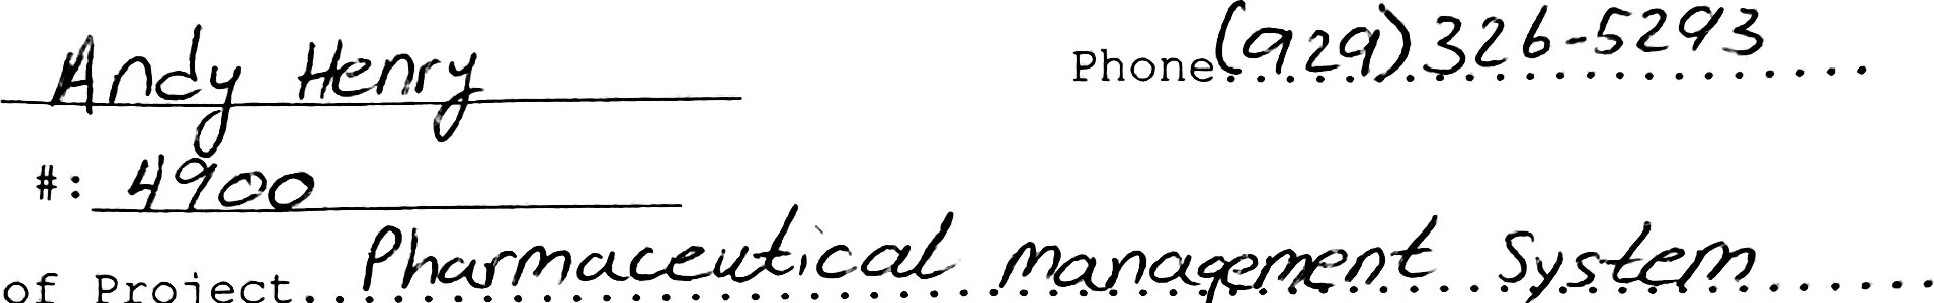 Andy Henry Phone (929) 326-5293
#: 4900
of Project Pharmaceutical management System